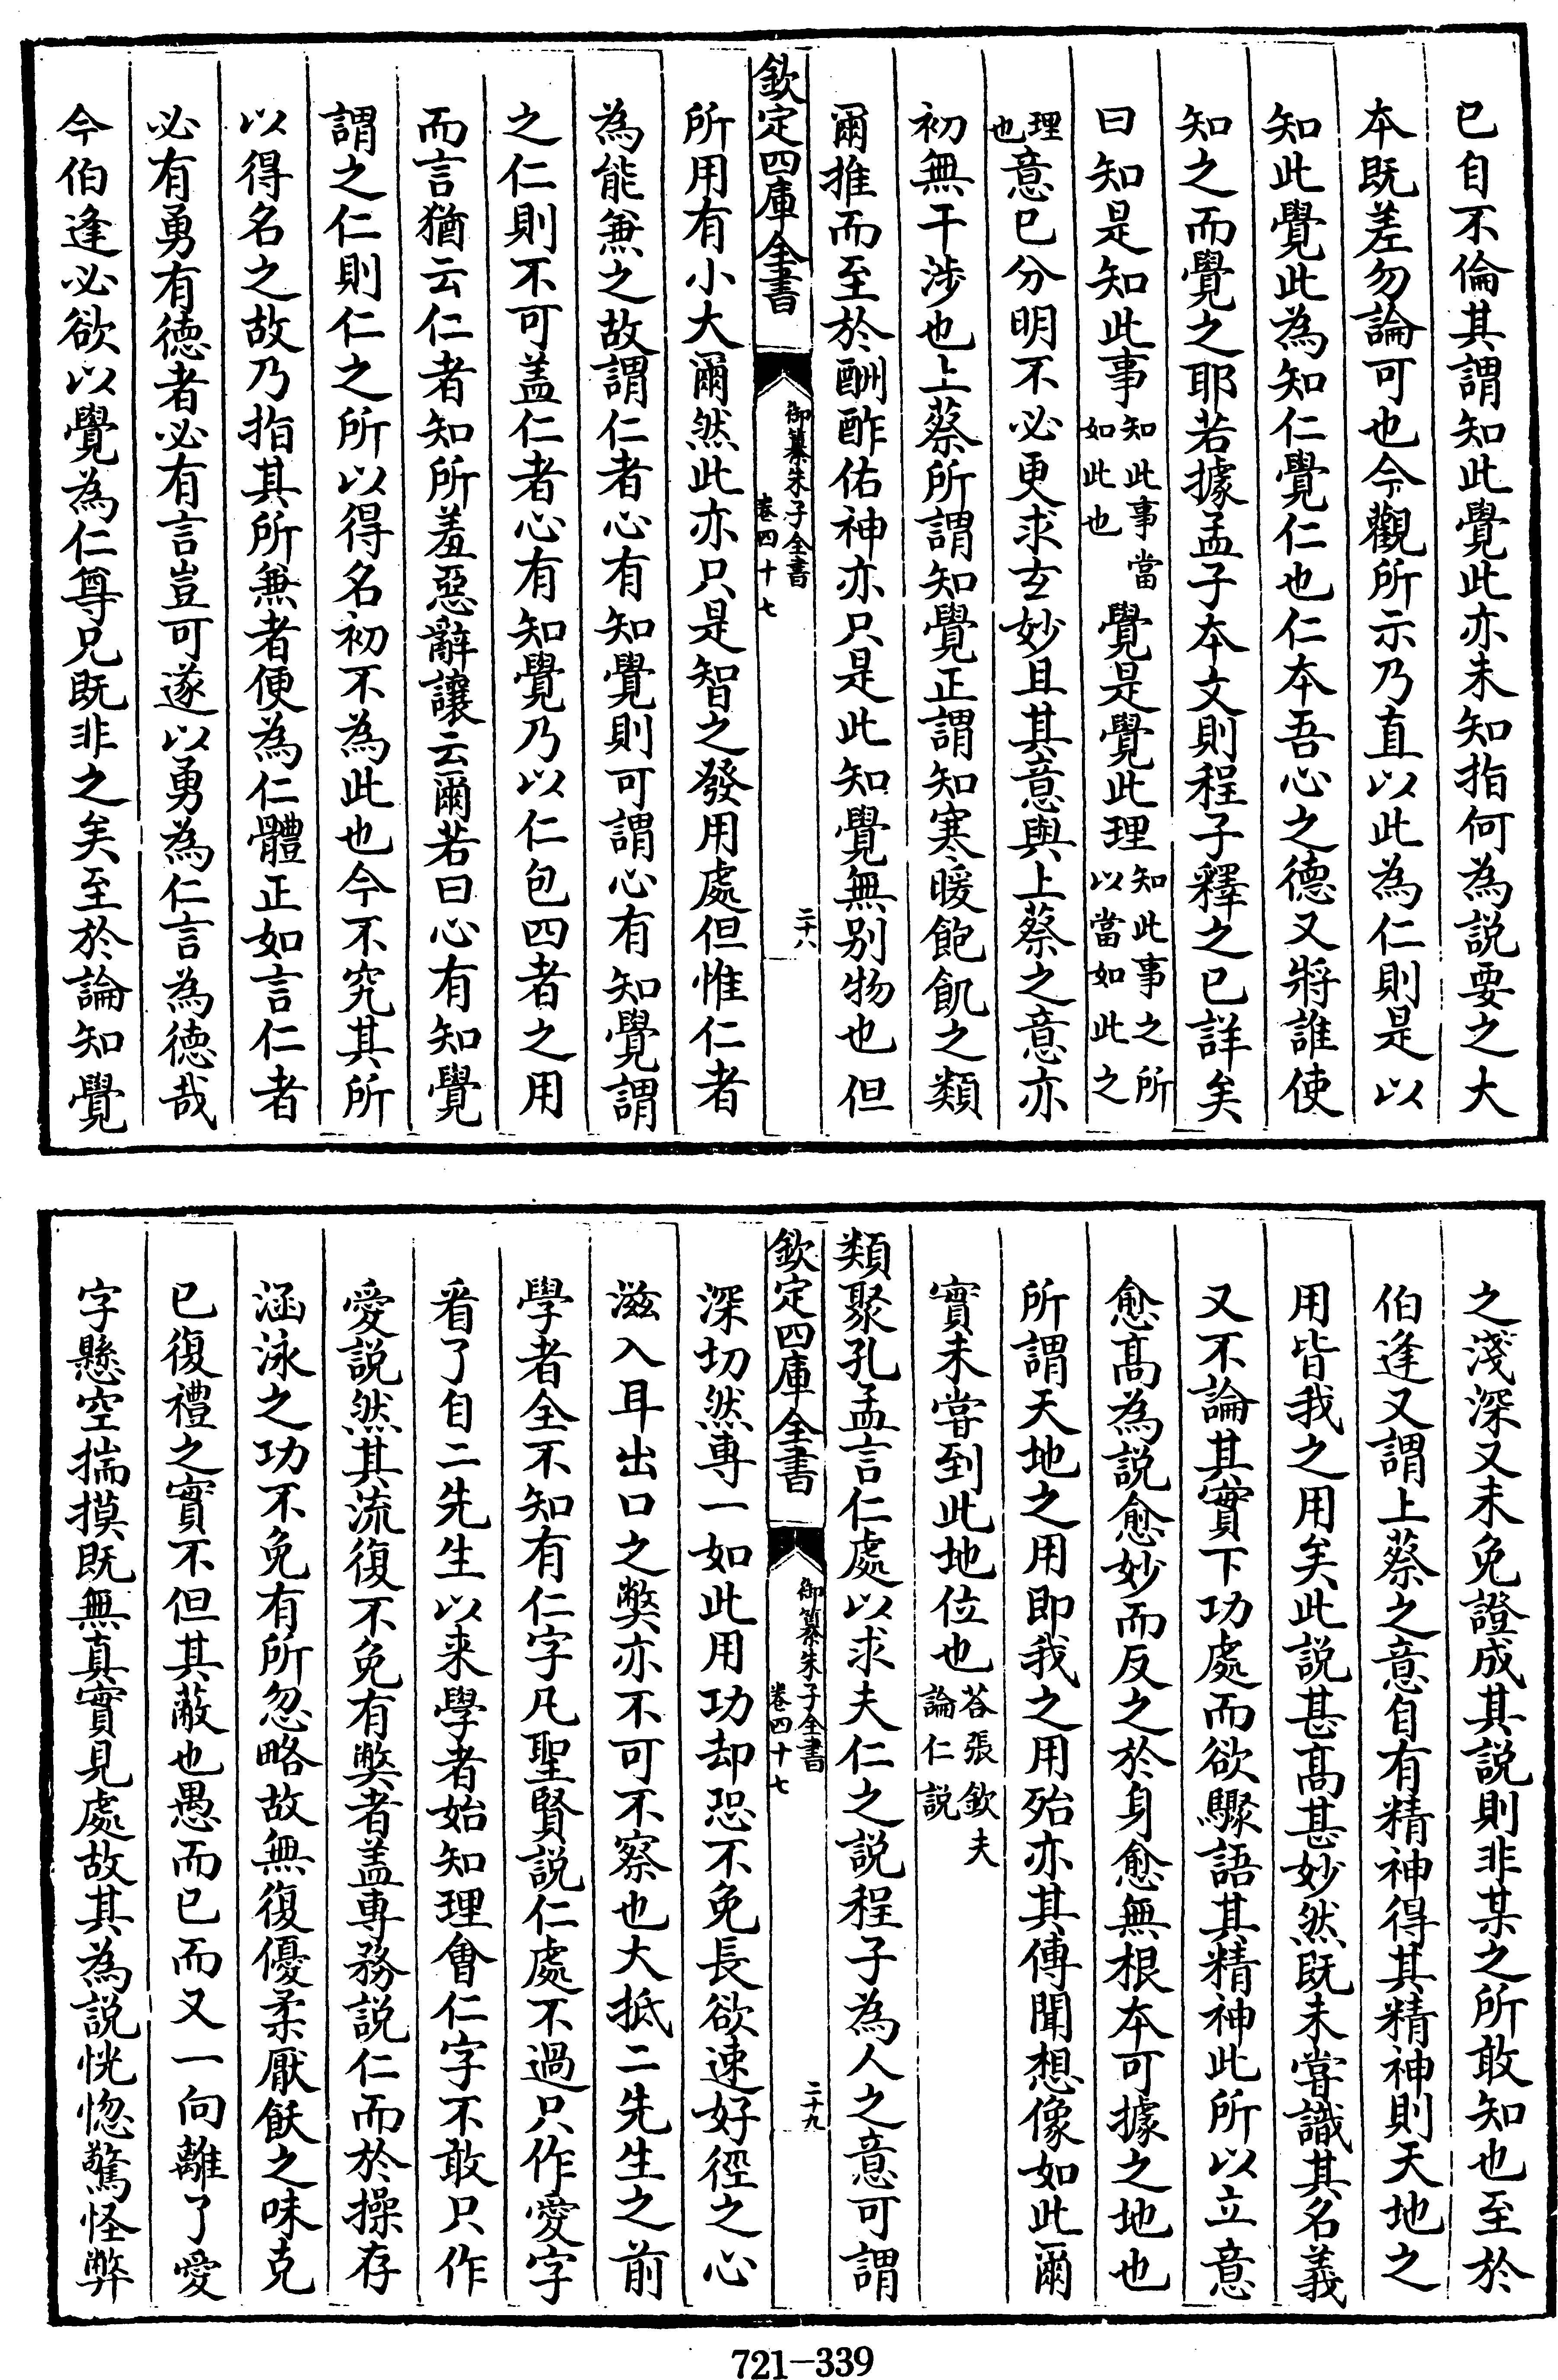 已自不倫其謂知此覺此亦未知指何為説要之大
本既差勿論可也今觀所示乃直以此為仁則是以
知此覺此為知仁覺仁也仁本吾心之德又將誰使
知之而覺之耶若據孟子本文則程子釋之已詳矣
曰知是知此事知此事當如此也覺是覺此理知此事之所以當如此之
理也意已分明不必更求玄妙且其意與上蔡之意亦
初無干涉也上蔡所謂知覺正謂知寒暖飽飢之類
爾推而至於酬酢佑神亦只是此知覺無别物也但
欽定四庫全書
御纂朱子全書
卷四十七
二十八
所用有小大爾然此亦只是智之發用處但惟仁者
為能兼之故謂仁者心有知覺則可謂心有知覺謂
之仁則不可盖仁者心有知覺乃以仁包四者之用
而言猶云仁者知所羞惡辭讓云爾若曰心有知覺
謂之仁則仁之所以得名初不為此也今不究其所
以得名之故乃指其所兼者便為仁體正如言仁者
必有勇有德者必有言豈可遂以勇為仁言為德哉
今伯逢必欲以覺為仁尊兄既非之矣至於論知覺
之淺深又未免證成其説則非某之所敢知也至於
伯逢又謂上蔡之意自有精神得其精神則天地之
用皆我之用矣此説甚高甚妙然既未嘗識其名義
又不論其實下功處而欲驟語其精神此所以立意
愈高為説愈妙而反之於身愈無根本可據之地也
所謂天地之用即我之用殆亦其傳聞想像如此爾
實未嘗到此地位也荅張欽夫論仁説
類聚孔孟言仁處以求夫仁之説程子為人之意可謂
欽定四庫全書
御纂朱子全書
卷四十七
二十九
深切然專一如此用功却恐不免長欲速好徑之心
滋入耳出口之獘亦不可不察也大抵二先生之前
學者全不知有仁字凡聖賢説仁處不過只作愛字
看了自二先生以来學者始知理會仁字不敢只作
愛説然其流復不免有獘者盖專務説仁而於操存
涵泳之功不免有所忽略故無復優柔厭飫之味克
已復禮之實不但其蔽也愚而已而又一向離了愛
字懸空揣摸既無真實見處故其為説恍惚驚怪弊
721-339